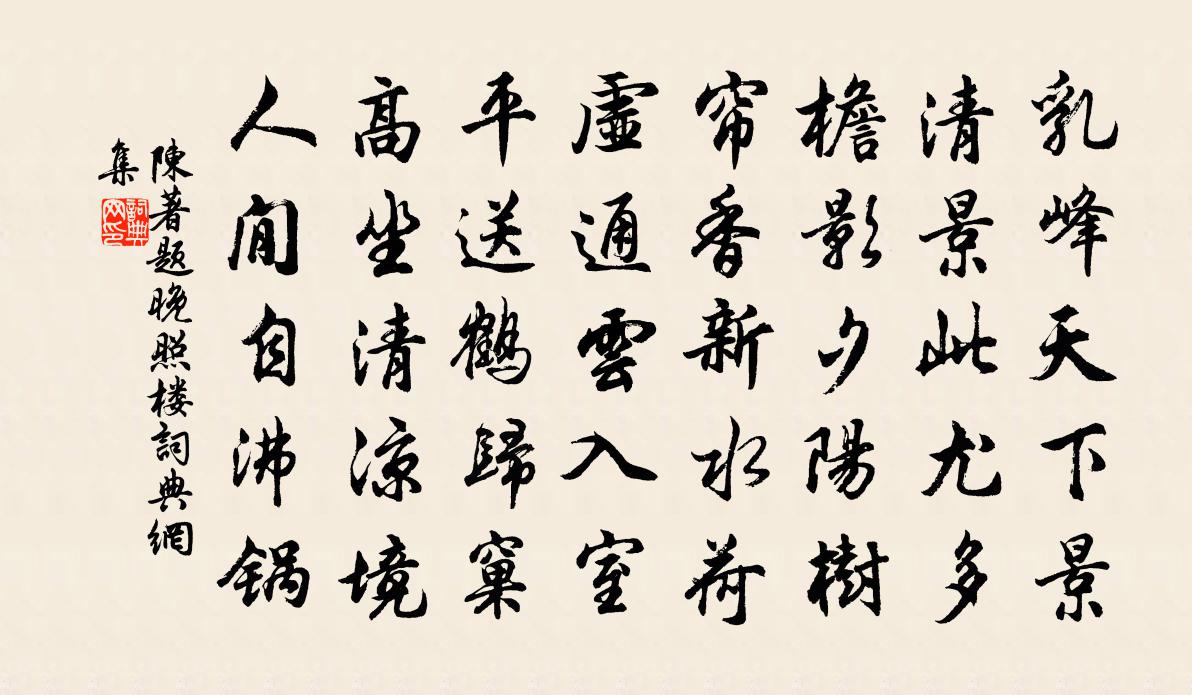 乳峰天下景
清景此尤多
檐影夕陽樹
帘香新水荷
虛通雲入室
平送鶴歸窠
高坐清涼境
人間自沸锅
陳著題晚照楼詞典網
集
詞典
网印